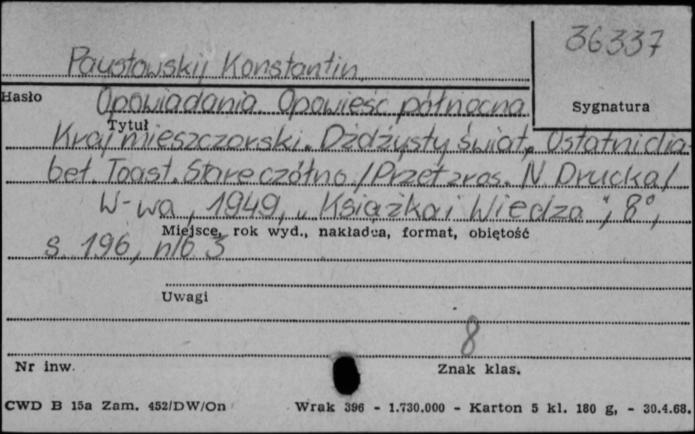 36337
Paustowskij Konstantin
Hasło
Opowiadania. Opowieść północna.
Sygnatura
Tytuł
Kraj mieszczorski. Dżdżysty świat. Ostatni dia-
beł. Toast. Stare czółno. /Przeł. z ros. N. Drucka/
W-wa, 1949, "Książka i Wiedza", 8°,
Miejsce, rok wyd., nakładca, format, objętość
s. 196, nlb 3
Uwagi
8
Nr inw.
Znak klas.
CWD B 15a Zam. 452/DW/On
Wrak 396 - 1.730.000 - Karton 5 kl. 180 g, - 30.4.68.